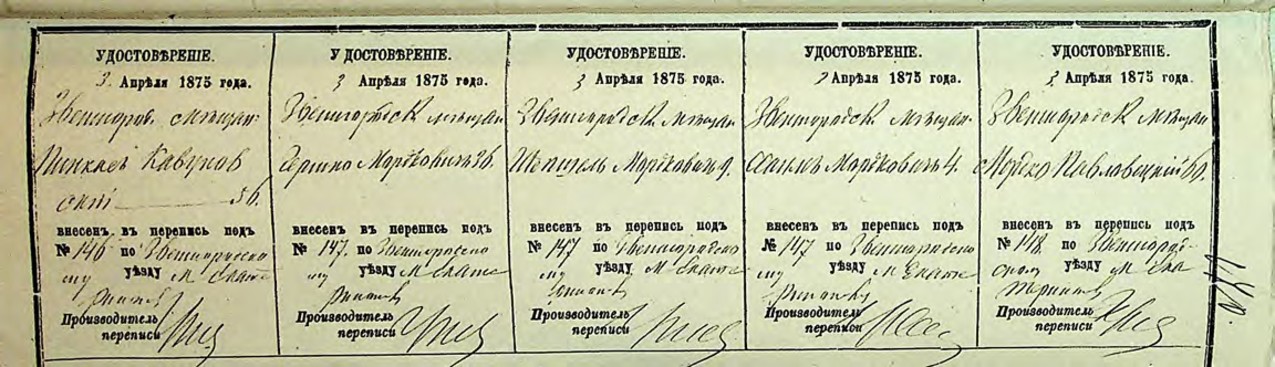 УДОСТОВѢРЕНІЕ.
3. Апрѣля 1875 года.
Звенигород. мѣщан.
Пинхасъ Кавунов
скій 56.
внесенъ въ перепись подъ
№ 146 по Звенигородско
му уѣзду м Екате
ринополь
Производитель
переписи
УДОСТОВѢРЕНІЕ.
3 Апрѣля 1875 года.
Звенигородск мѣщан
Мордковичъ 36.
внесенъ въ перепись подъ
№ 147. по Звенигородско
му уѣзду м Екате
Производитель
переписи
УДОСТОВѢРЕНІЕ.
3 Апрѣля 1875 года.
Звенигородск мѣщан
Мордковичъ 9.
внесенъ въ перепись подъ
№ 147 по Звенигородско
му уѣзду м Екате
Производитель
переписи
УДОСТОВѢРЕНІЕ.
3 Апрѣля 1875 года.
Звенигородск мѣщан
Мордковичъ 4.
внесенъ въ перепись подъ
№ 147 по Звенигородско
му уѣзду м Екате
Производитель
переписи
УДОСТОВѢРЕНІЕ.
3 Апрѣля 1875 года.
Звенигородск мѣщан
Мордко Павлавецкій 60.
внесенъ въ перепись подъ
№ 148. по Звенигород
скому уѣзду м Ека
Производитель
переписи